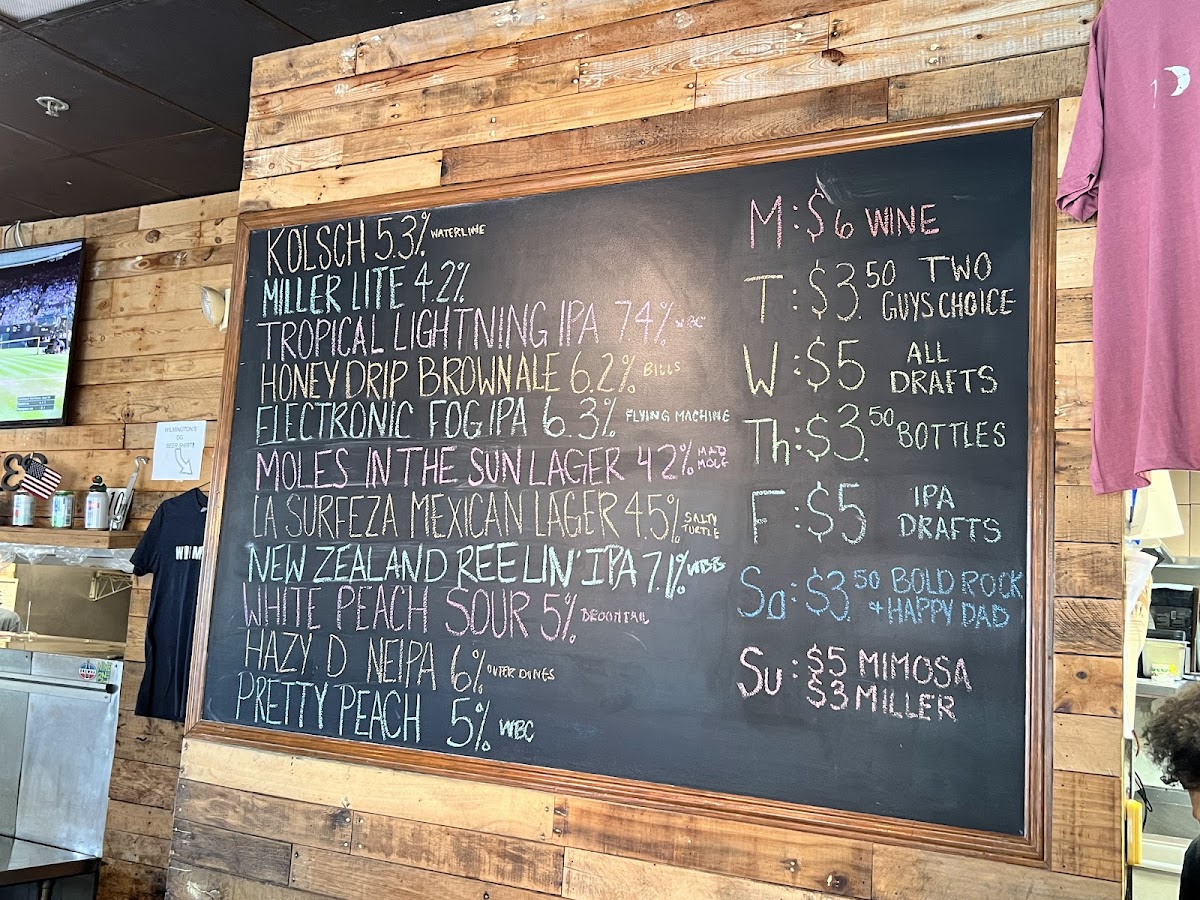 KOLSCH 5.3% WATERLINE
MILLER LITE 4.2%
TROPICAL LIGHTNING IPA 7.4% WBC
HONEY DRIP BROWN ALE 6.2% BILLS
ELECTRONIC FOG IPA 6.3% FLYING MACHINE
MOLES IN THE SUN LAGER 4.2% MAD MOLE
LA SURFEZA MEXICAN LAGER 4.5% SALTY TURTLE
NEW ZEALAND REELIN' IPA 7.1% WBB
WHITE PEACH SOUR 5%
HAZY D NEIPA 6%
PRETTY PEACH 5% WBC
M: $6 WINE
T: $3.50 TWO GUYS CHOICE
W: $5 ALL DRAFTS
Th: $3.50 BOTTLES
F: $5 IPA DRAFTS
Sa: $3.50 BOLD ROCK + HAPPY DAD
Su: $5 MIMOSA
$3 MILLER
WILMINGTON'S
OG
BEER SHIRT!!